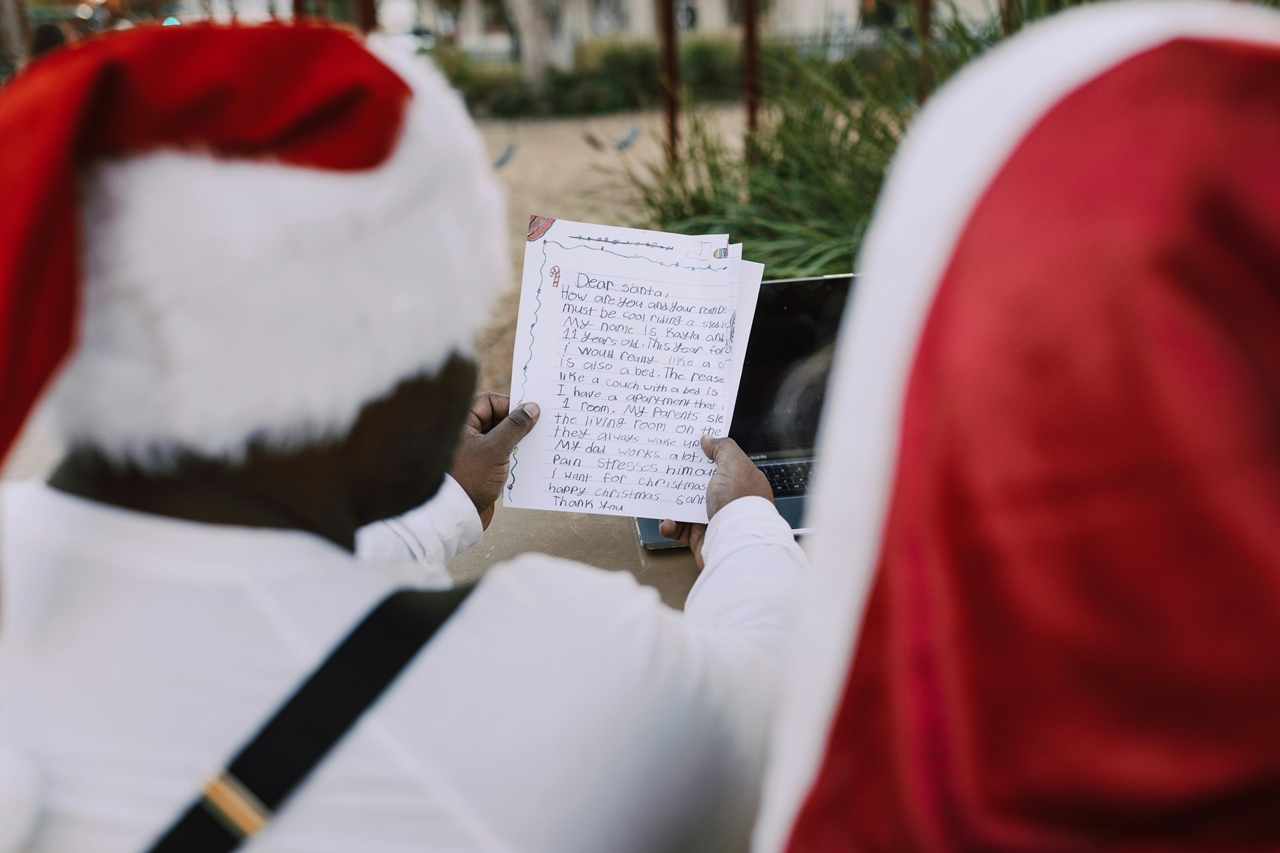 Dear santa,
How are you and your
must be cool riding a
My name is Kayla and
11 years old. This year for
i would really like a
is also a bed. The
like a couch with a bed is
I have a apartment that
1 room. My Parents
the living room on the
they always wake up
My dad works alot,
pain stresses him out
i want for christmas
happy christmas
Thank you